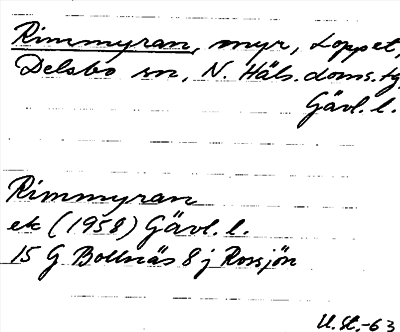 Rimmyran, myr, Loppet,
Delsbo sn, N. Häls. doms.sg,
Gävl. l.
Rimmyran
ek (1958) Gävl. l.
15 G Bollnäs 8 j Rossjön
U.St.-63